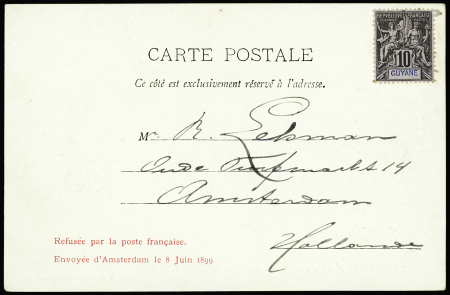 RÉPUBLIQUE FRANÇAISE
10
GUYANE
CARTE POSTALE
Ce côté est exclusivement réservé à l'adresse.
Mr. R. Lehman
Oude 14
Amsterdam
Hollande
Refusée par la poste française.
Envoyée d'Amsterdam le 8 Juin 1899